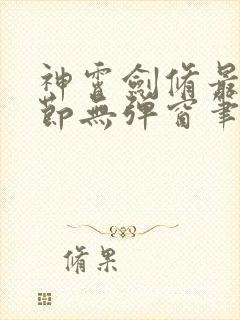 神霄劍脩最
節無彈窗筆
脩果